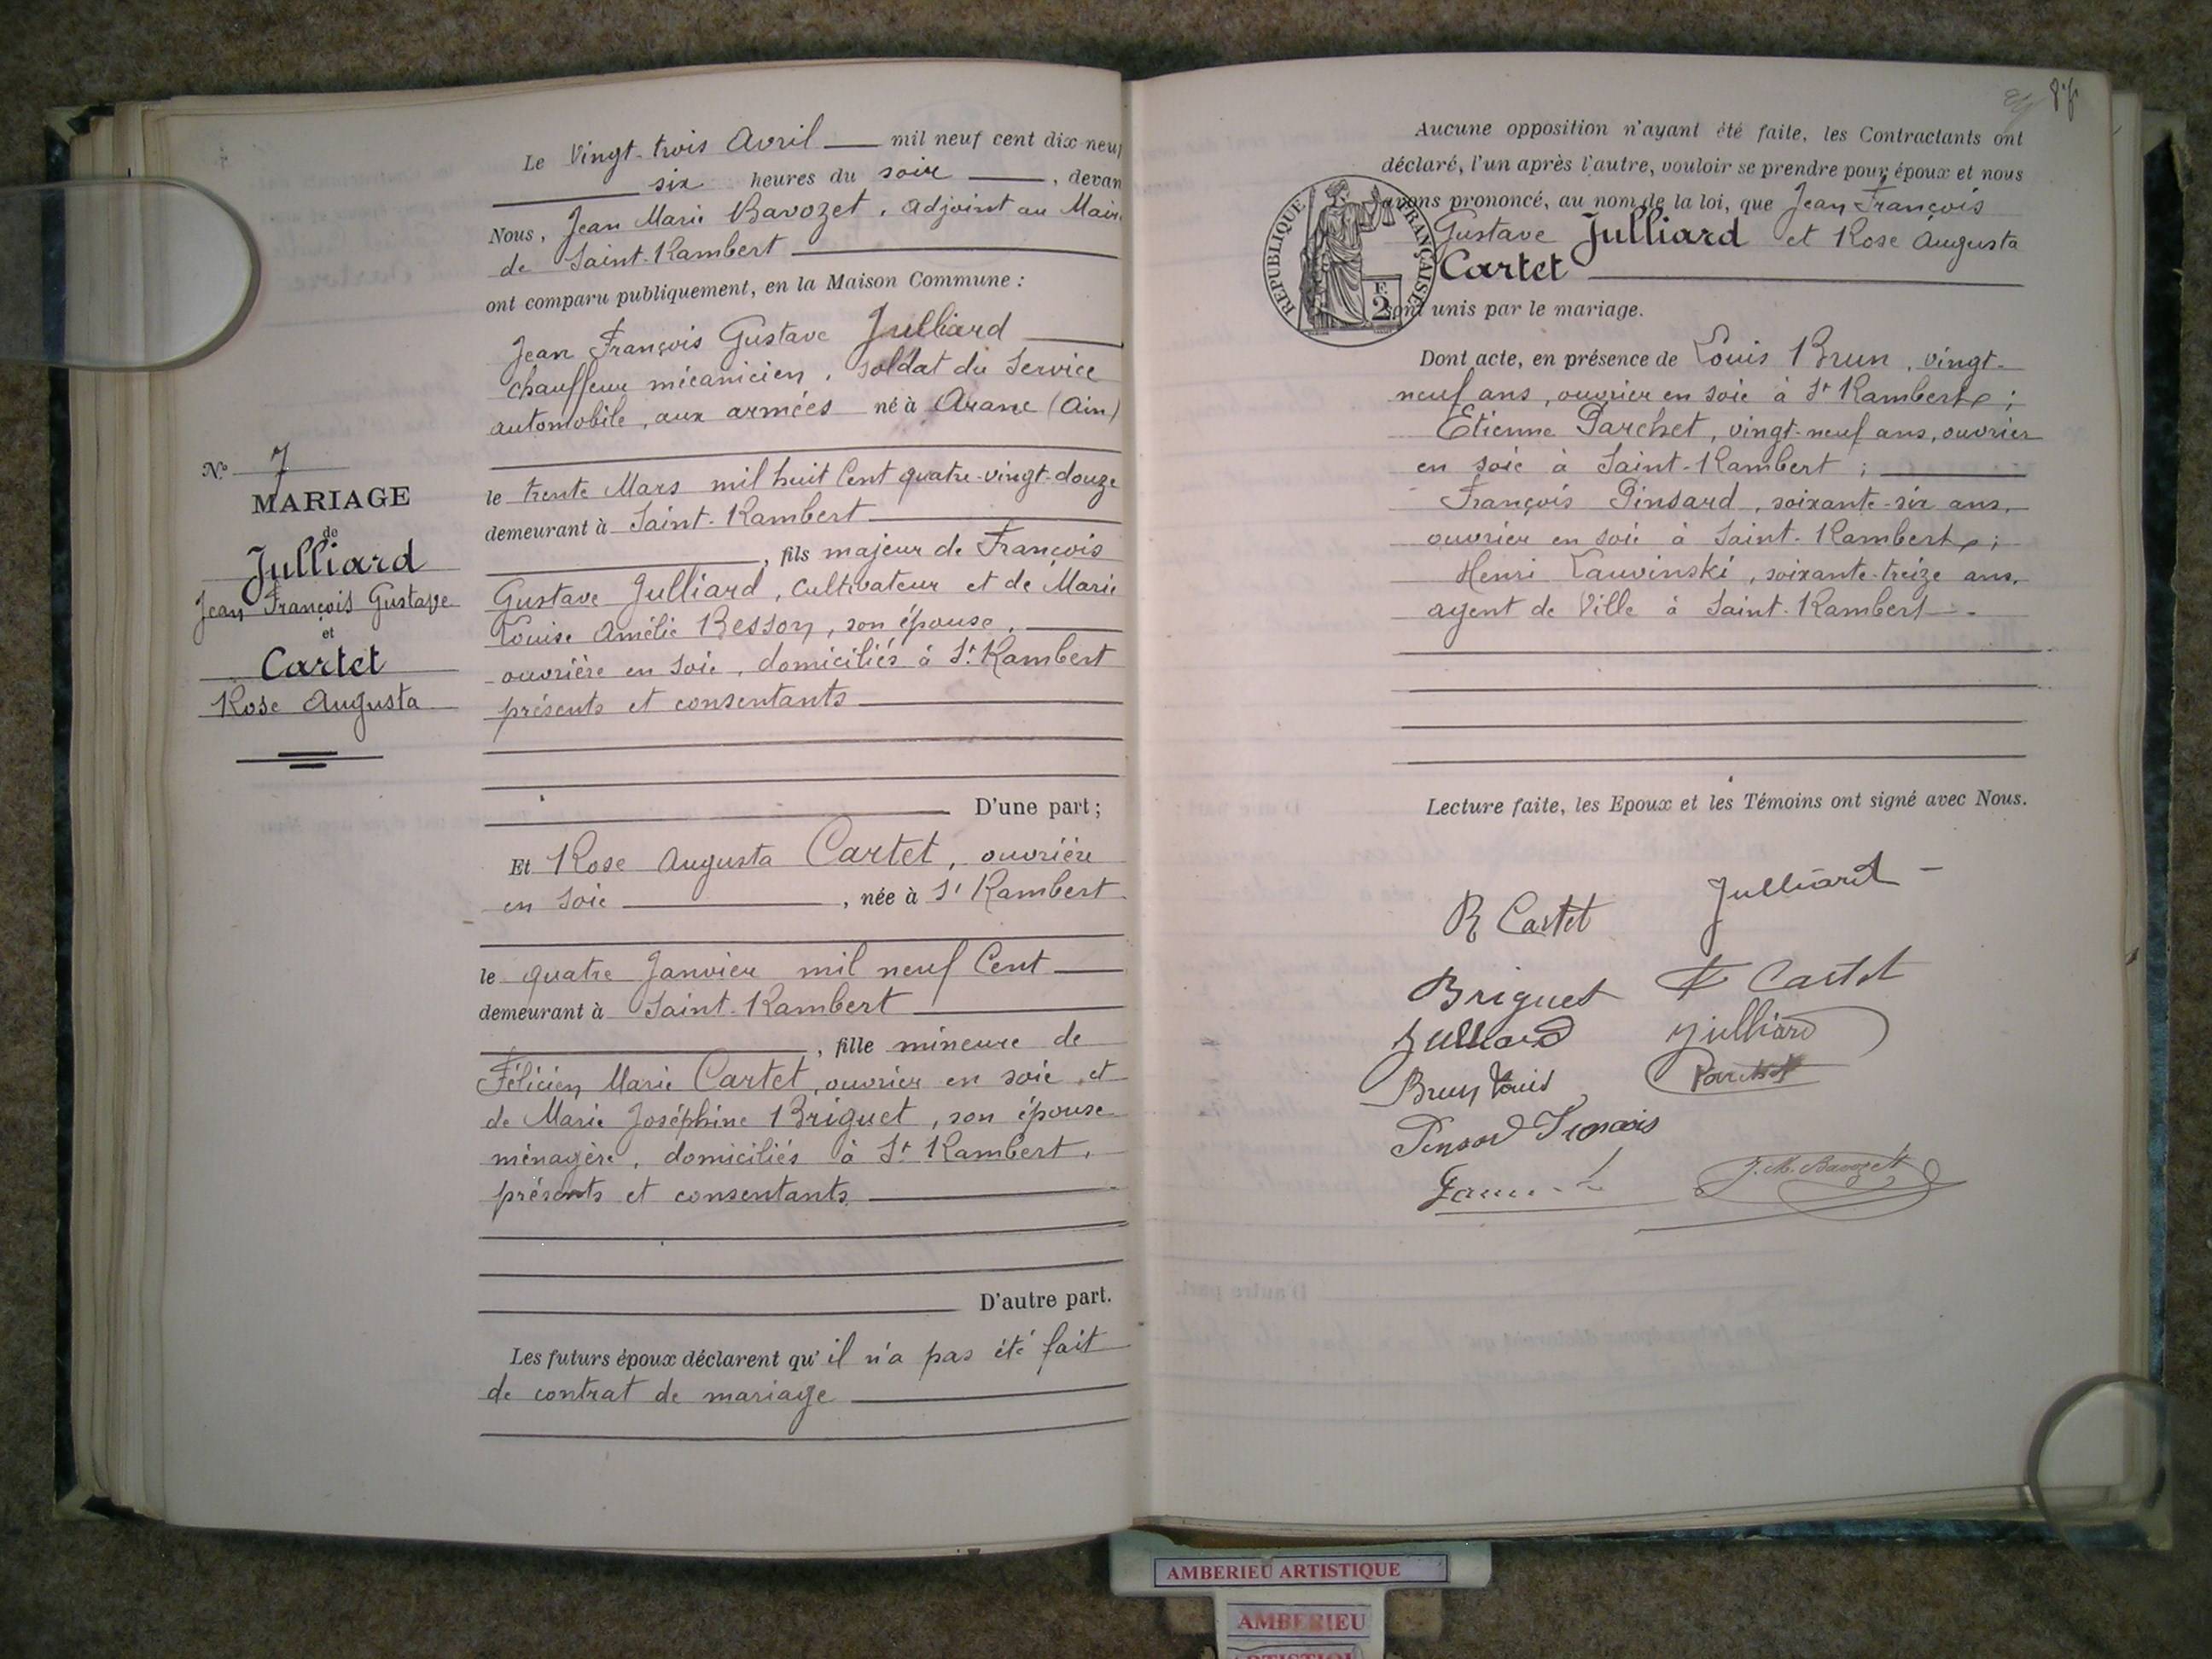 Nº 7
MARIAGE
de
Julliard
Jean François Gustave
et
Cartet
Rose Augusta
Le Vingt-trois Avril mil neuf cent dix-neuf
six heures du soir, devan
Nous, Jean Marie Bavozet, Adjoint au Mair
de Saint-Rambert
ont comparu publiquement, en la Maison Commune :
Jean François Gustave Julliard
chauffeur mécanicien, soldat du Service
automobile, aux armées né à Aranc (Ain)
le trente Mars mil huit Cent quatre-vingt-douze
demeurant à Saint-Rambert
, fils majeur de François
Gustave Julliard, cultivateur et de Marie
Louise Amélie Besson, son épouse,
ouvrière en soie, domiciliés à St Rambert
présents et consentants
D'une part ;
Et Rose Augusta Cartet, ouvrière
en soie, née à St Rambert
le quatre Janvier mil neuf Cent
demeurant à Saint-Rambert
, fille mineure de
Félicien Marie Cartet, ouvrier en soie, et
de Marie Joséphine Briguet, son épouse
ménagère, domiciliés à St Rambert,
présents et consentants
D'autre part.
Les futurs époux déclarent qu'il n'a pas été fait
de contrat de mariage
Aucune opposition n'ayant été faite, les Contractants ont
déclaré, l'un après l'autre, vouloir se prendre pour époux et nous
avons prononcé, au nom de la loi, que Jean François
Gustave Julliard et Rose Augusta
Cartet
sont unis par le mariage.
REPUBLIQUE FRANÇAISE
2 F.
Dont acte, en présence de Louis Brun, vingt-
neuf ans, ouvrier en soie à St Rambert ;
Etienne Parchet, vingt-neuf ans, ouvrier
en soie à Saint-Rambert ;
François Pinsard, soixante-six ans,
ouvrier en soie à Saint-Rambert ;
Henri Lauvinski, soixante-treize ans,
agent de Ville à Saint-Rambert.
Lecture faite, les Epoux et les Témoins ont signé avec Nous.
R Cartet Julliard
Briguet F Cartet
Julliard Julliard
Brun Louis Parchet
Pensard François
J. M. Bavozet
AMBERIEU ARTISTIQUE
AMBERIEU
ARTISTIQU